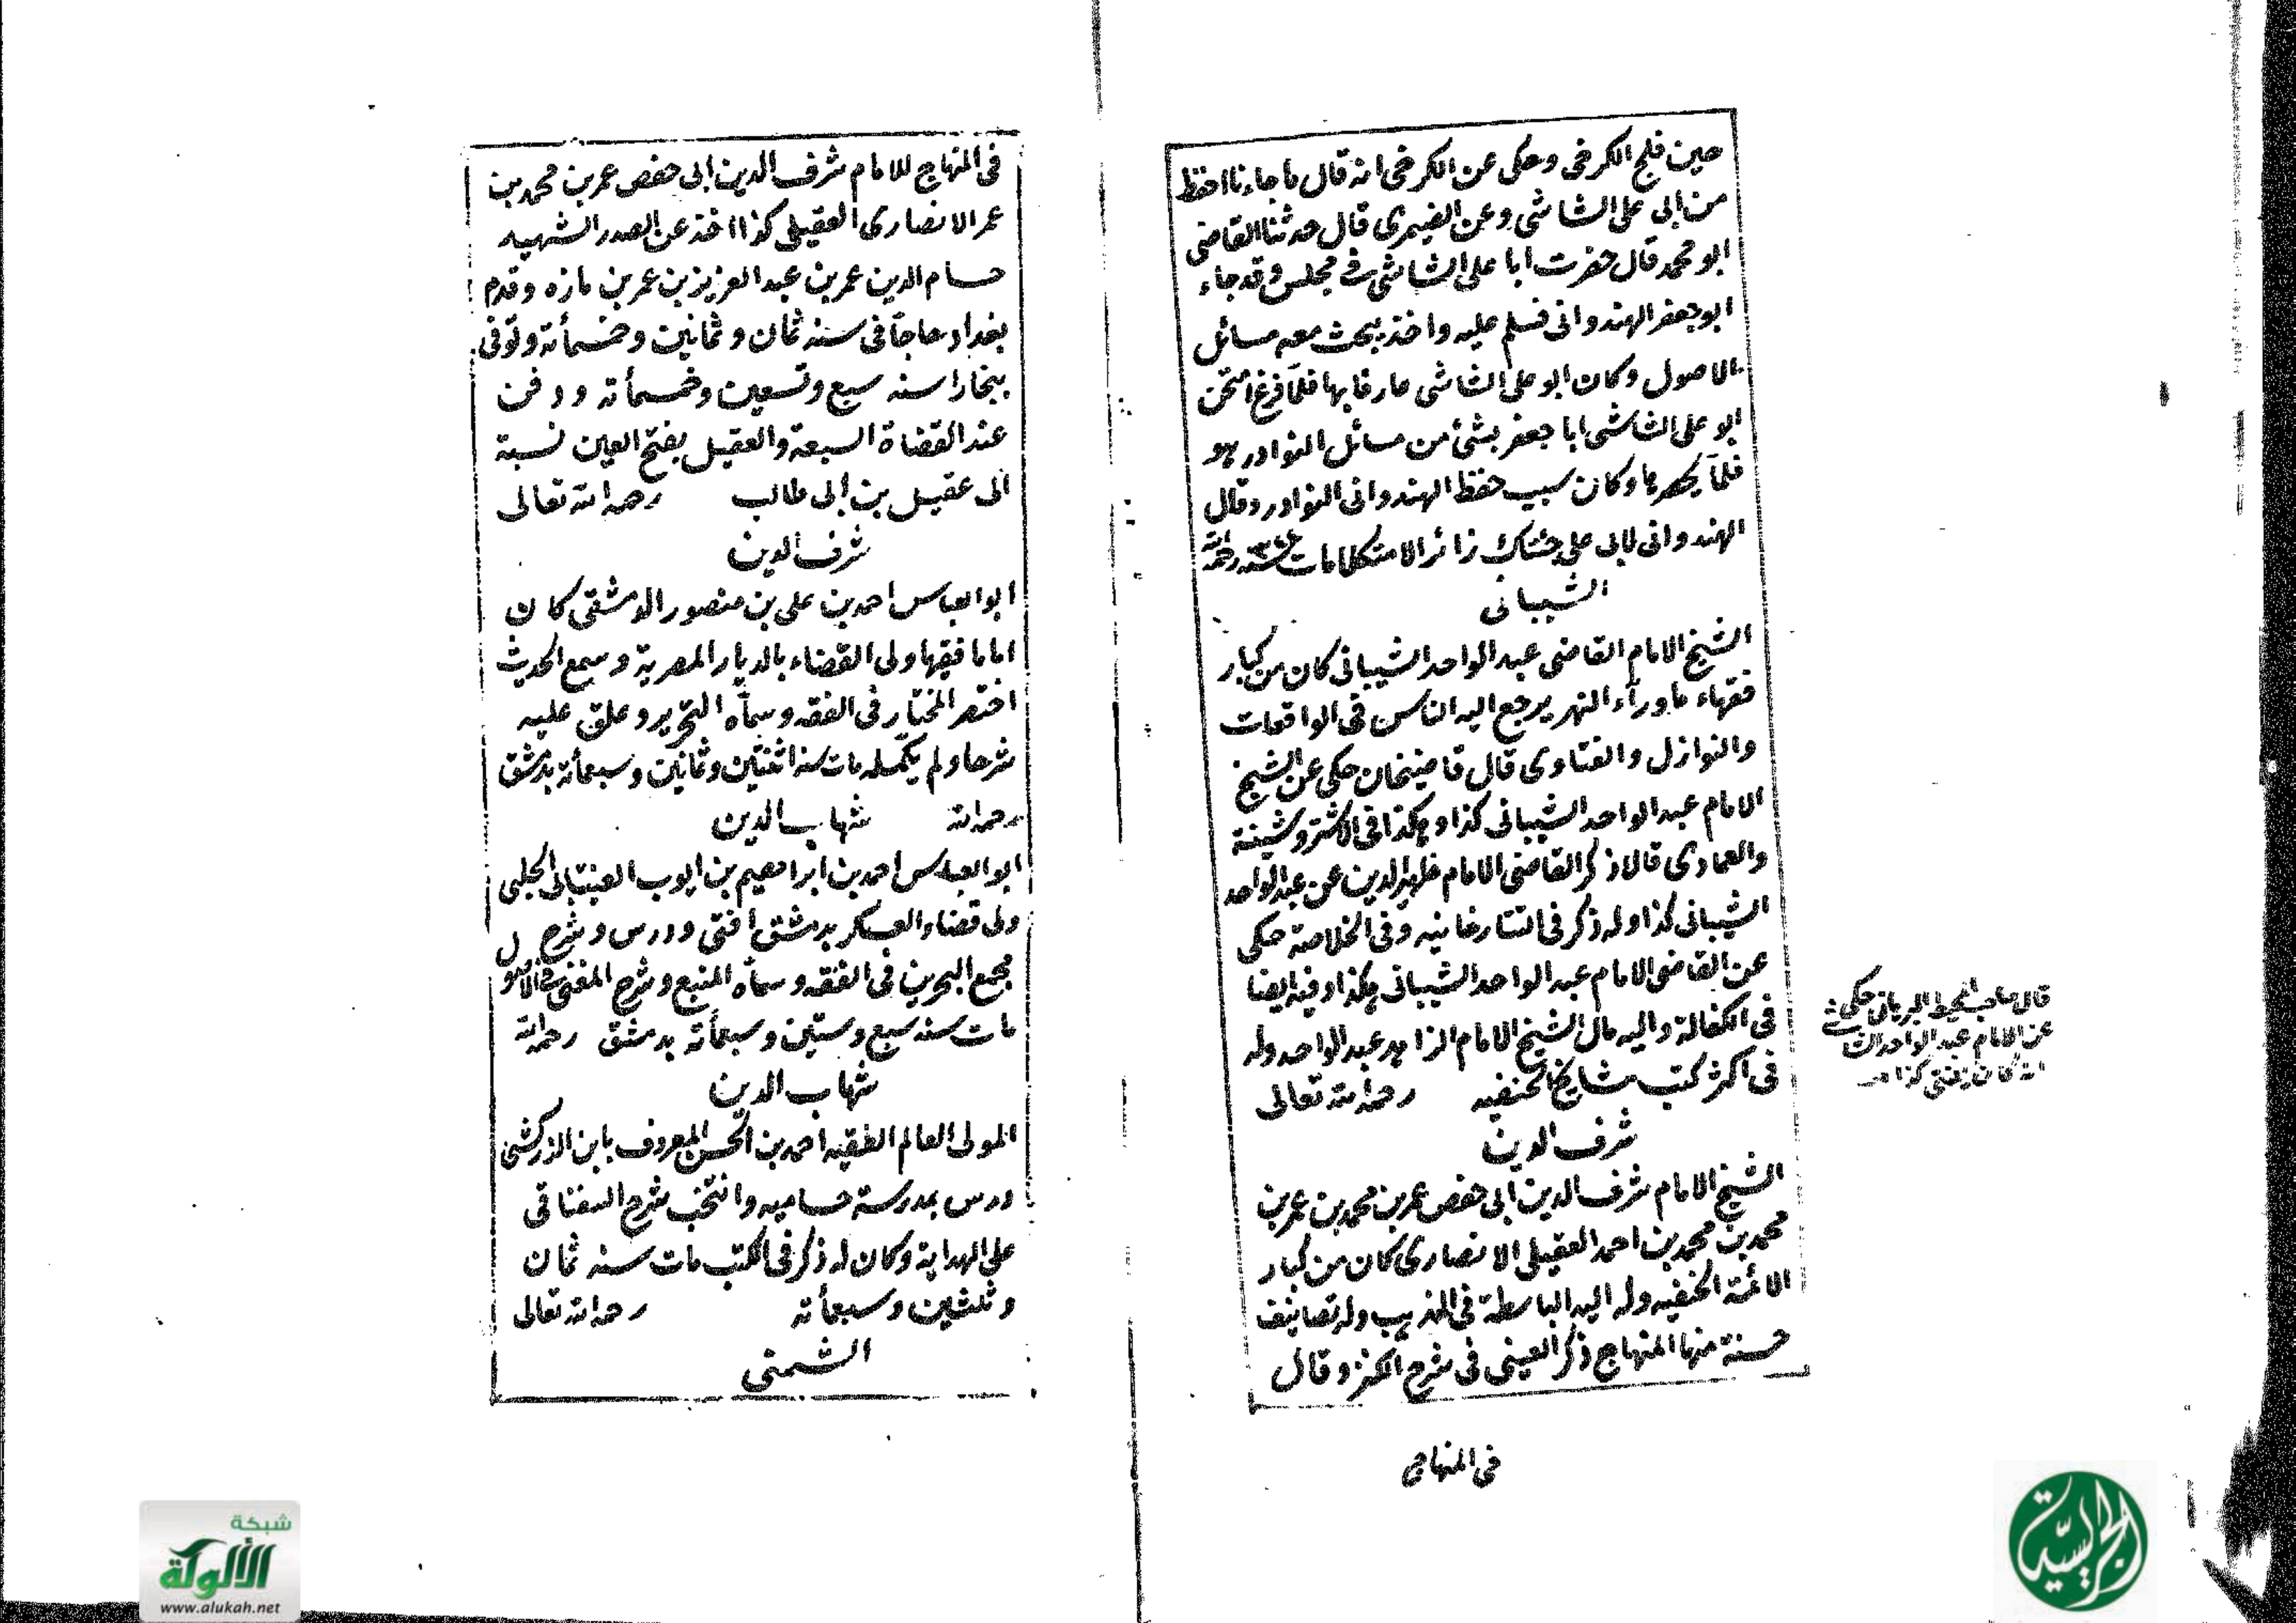 حين فلج الكرخى وحكى عن الكرخى انه قال ما جاءنا احفظ
من ابى على الشاشى وعن الصيمرى قال حدثنا القاضى
ابو محمد قال حضرت ابا على الشاشى فى مجلس وقد جاء
ابو جعفر الهندوانى فسلم عليه واخذ يبحث معه مسائل
الاصول وكان ابو على الشاشى عارفا بها فلما فرغ امتحن
ابو على الشاشى ابا جعفر بشئ من مسائل النوادر
فلم يحضرها وكان سبب حفظ الهندوانى النوادر وقال
الهندوانى لابى على جئتك زائرا لا متكلما مات سنة ٣٤٤ رحمه الله
الشيبانى
الشيخ الامام القاضى عبد الواحد الشيبانى كان من كبار
فقهاء ماورآء النهر يرجع اليه الناس فى الواقعات
والنوازل والفتاوى قال قاضيخان حكى عن الشيخ
الامام عبد الواحد الشيبانى كذا وهكذا فى الاشتروشنية
والعمادى قالا ذكر القاضى الامام ظهير الدين عن عبد الواحد
الشيبانى كذا وله ذكر فى التتارخانيه وفى الخلاصة حكى
عن القاضى الامام عبد الواحد الشيبانى هكذا وفيه ايضا
فى الكفالة واليه مال الشيخ الامام الزاهد عبد الواحد وله
فى اكثر كتب مشايخ الحنفيه رحمه الله تعالى
قال صاحب المحيط البرهانى حكى
عن الامام عبد الواحد
انه كان يفتى كذا
شرف الدين
الشيخ الامام شرف الدين ابى حفص عمر بن محمد بن عمر بن
محمد بن محمد بن احمد العقيلى الانصارى كان من كبار
الائمة الحنفيه وله اليد الباسطة فى المذهب وله تصانيف
حسنة منها المنهاج ذكر العينى فى شرح الكنز وقال
فى المنهاج
فى المنهاج للامام شرف الدين ابى حفص عمر بن محمد بن
عمر الانصارى العقيلى كذا اخذ عن الصدر الشهيد
حسام الدين عمر بن عبد العزيز بن عمر بن مازه وقدم
بغداد حاجا فى سنة ثمان وثمانين وخمسمأة وتوفى
ببخارا سنه سبع وتسعين وخمسمأة ودفن
عند القضاة السبعة والعقيل بفتح العين نسبة
الى عقيل بن ابى طالب رحمه الله تعالى
شرف الدين
ابو العباس احمد بن على بن منصور الدمشقى كان
اماما فقيها ولى القضاء بالديار المصرية وسمع الحديث
اختصر المختار فى الفقه وسماه التحرير وعلق عليه
شرحا ولم يكمله مات سنة اثنتين وثمانين وسبعمأة بدمشق
رحمه الله شهاب الدين
ابو العباس احمد بن ابراهيم بن ايوب العينتابى الحلبى
ولى قضاء العسكر بدمشق افتى ودرس وشرح
مجمع البحرين فى الفقه وسماه المنبع وشرح المغنى فى الاصول
مات سنه سبع وستين وسبعمأة بدمشق رحمه الله
شهاب الدين
المولى العالم الفقيه احمد بن الحسن المعروف بابن الزركشى
درس بمدرسة حساميه وانتخب شرح السغناقى
على الهداية وكان له ذكر فى الكتب مات سنه ثمان
وثلثين وسبعمأة رحمه الله تعالى
الشمنى
شبكة
الألوكة
www.alukah.net